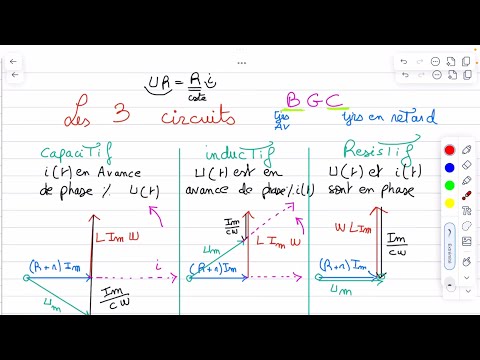 UR = R i
cste
Les 3 circuits
B G C
tjrs Av
tjrs en retard
capacitif
i(t) en Avance
de phase % U(t)
L Im W
(R+r) Im
i
Im/CW
Um
inductif
U(t) est en
avance de phase % i(t)
Im/CW
Um
L Im W
(R+r) Im
Resistif
U(t) et i(t)
sont en phase
W L Im
Im/CW
(R+r) Im
Um